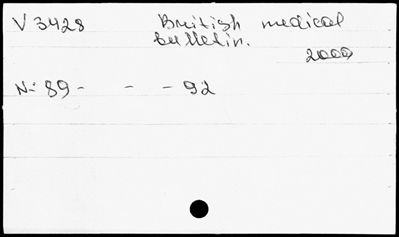 V 3428 British medical
bulletin.
2009
N: 89 - - - 92